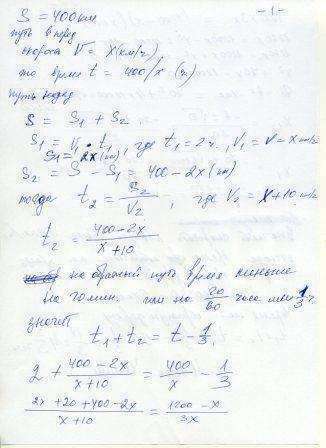 S = 400 км. - 1 -
путь вперед
скорость V = X (км/ч)
то время t = 400/x (ч)
путь назад
S = S₁ + S₂
S₁ = V₁ · t₁, где t₁ = 2 ч, V₁ = V = X км/ч
S₁ = 2x (км)
S₂ = S - S₁ = 400 - 2x (км)
тогда t₂ = S₂/V₂, где V₂ = X + 10 км/ч
t₂ = (400 - 2x)/(x + 10)
на обратный путь время меньше
на 20 мин. или на 20/60 часа или 1/3 ч.
значит
t₁ + t₂ = t - 1/3,
2 + (400 - 2x)/(x + 10) = 400/x - 1/3
(2x + 20 + 400 - 2x)/(x + 10) = (1200 - x)/3x